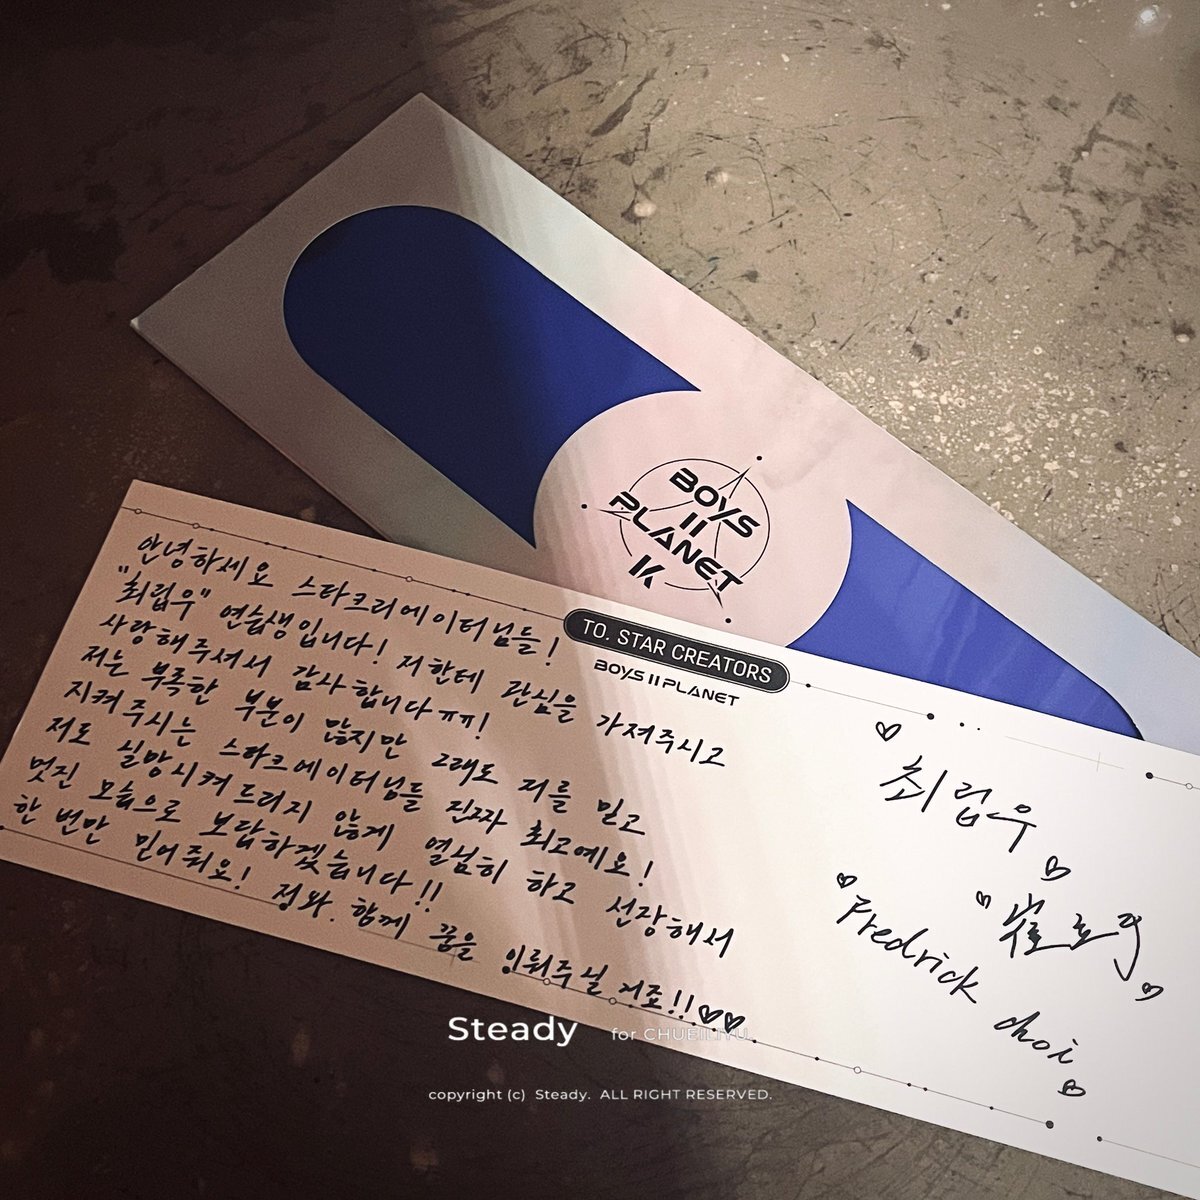 BOYS
II
PLANET
K
TO. STAR CREATORS
BOYS II PLANET
안녕하세요 스타크리에이터님들!
"최립우" 연습생입니다! 저한테 관심을 가져주시고
사랑해주셔서 감사합니다ㅠㅠ!
저는 부족한 부분이 많지만 그래도 저를 믿고
지켜주시는 스타크에이터님들 진짜 최고예요!
저도 실망시켜드리지 않게 열심히 하고 성장해서
멋진 모습으로 보답하겠습니다!!
한 번만 믿어줘요! 저와 함께 꿈을 이뤄주실 거죠!!♡♡
♡
최립우
♡
♡ 崔立于 ♡
♡ Fredrick choi ♡
Steady for CHUEILIYU.
copyright (c) Steady. ALL RIGHT RESERVED.